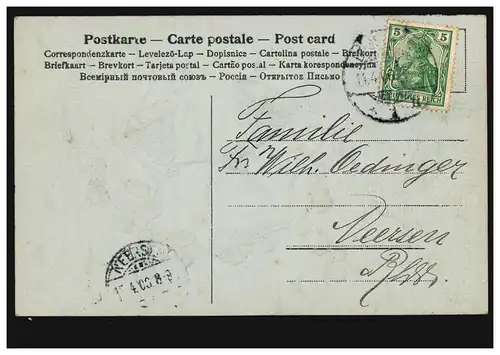 Postkarte – Carte postale – Post card
Correspondenzkarte – Levelezö-Lap – Dopisnice – Cartolina postale – Brefkort
Briefkaart – Brevkort – Tarjeta postal – Cartão postal – Karta korespondencyjna
Всемірный почтовый союзъ – Россія – Открытое Письмо
5 5
DEUTSCHES REICH
Familie
Wilh. Oedinger
Veersen
4.06.8-9